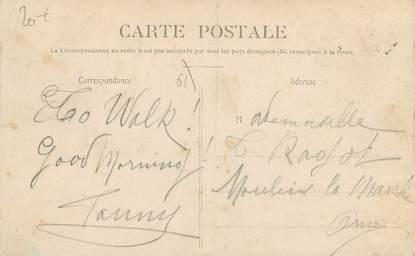 20 +
CARTE POSTALE
La Correspondance au recto n'est pas acceptée par tous les pays étrangers (Se renseigner à la Poste
Correspondance
61
Adresse
Walk!
Good Morning!
Fanny
Mademoiselle
Moulins la Marche
Orne